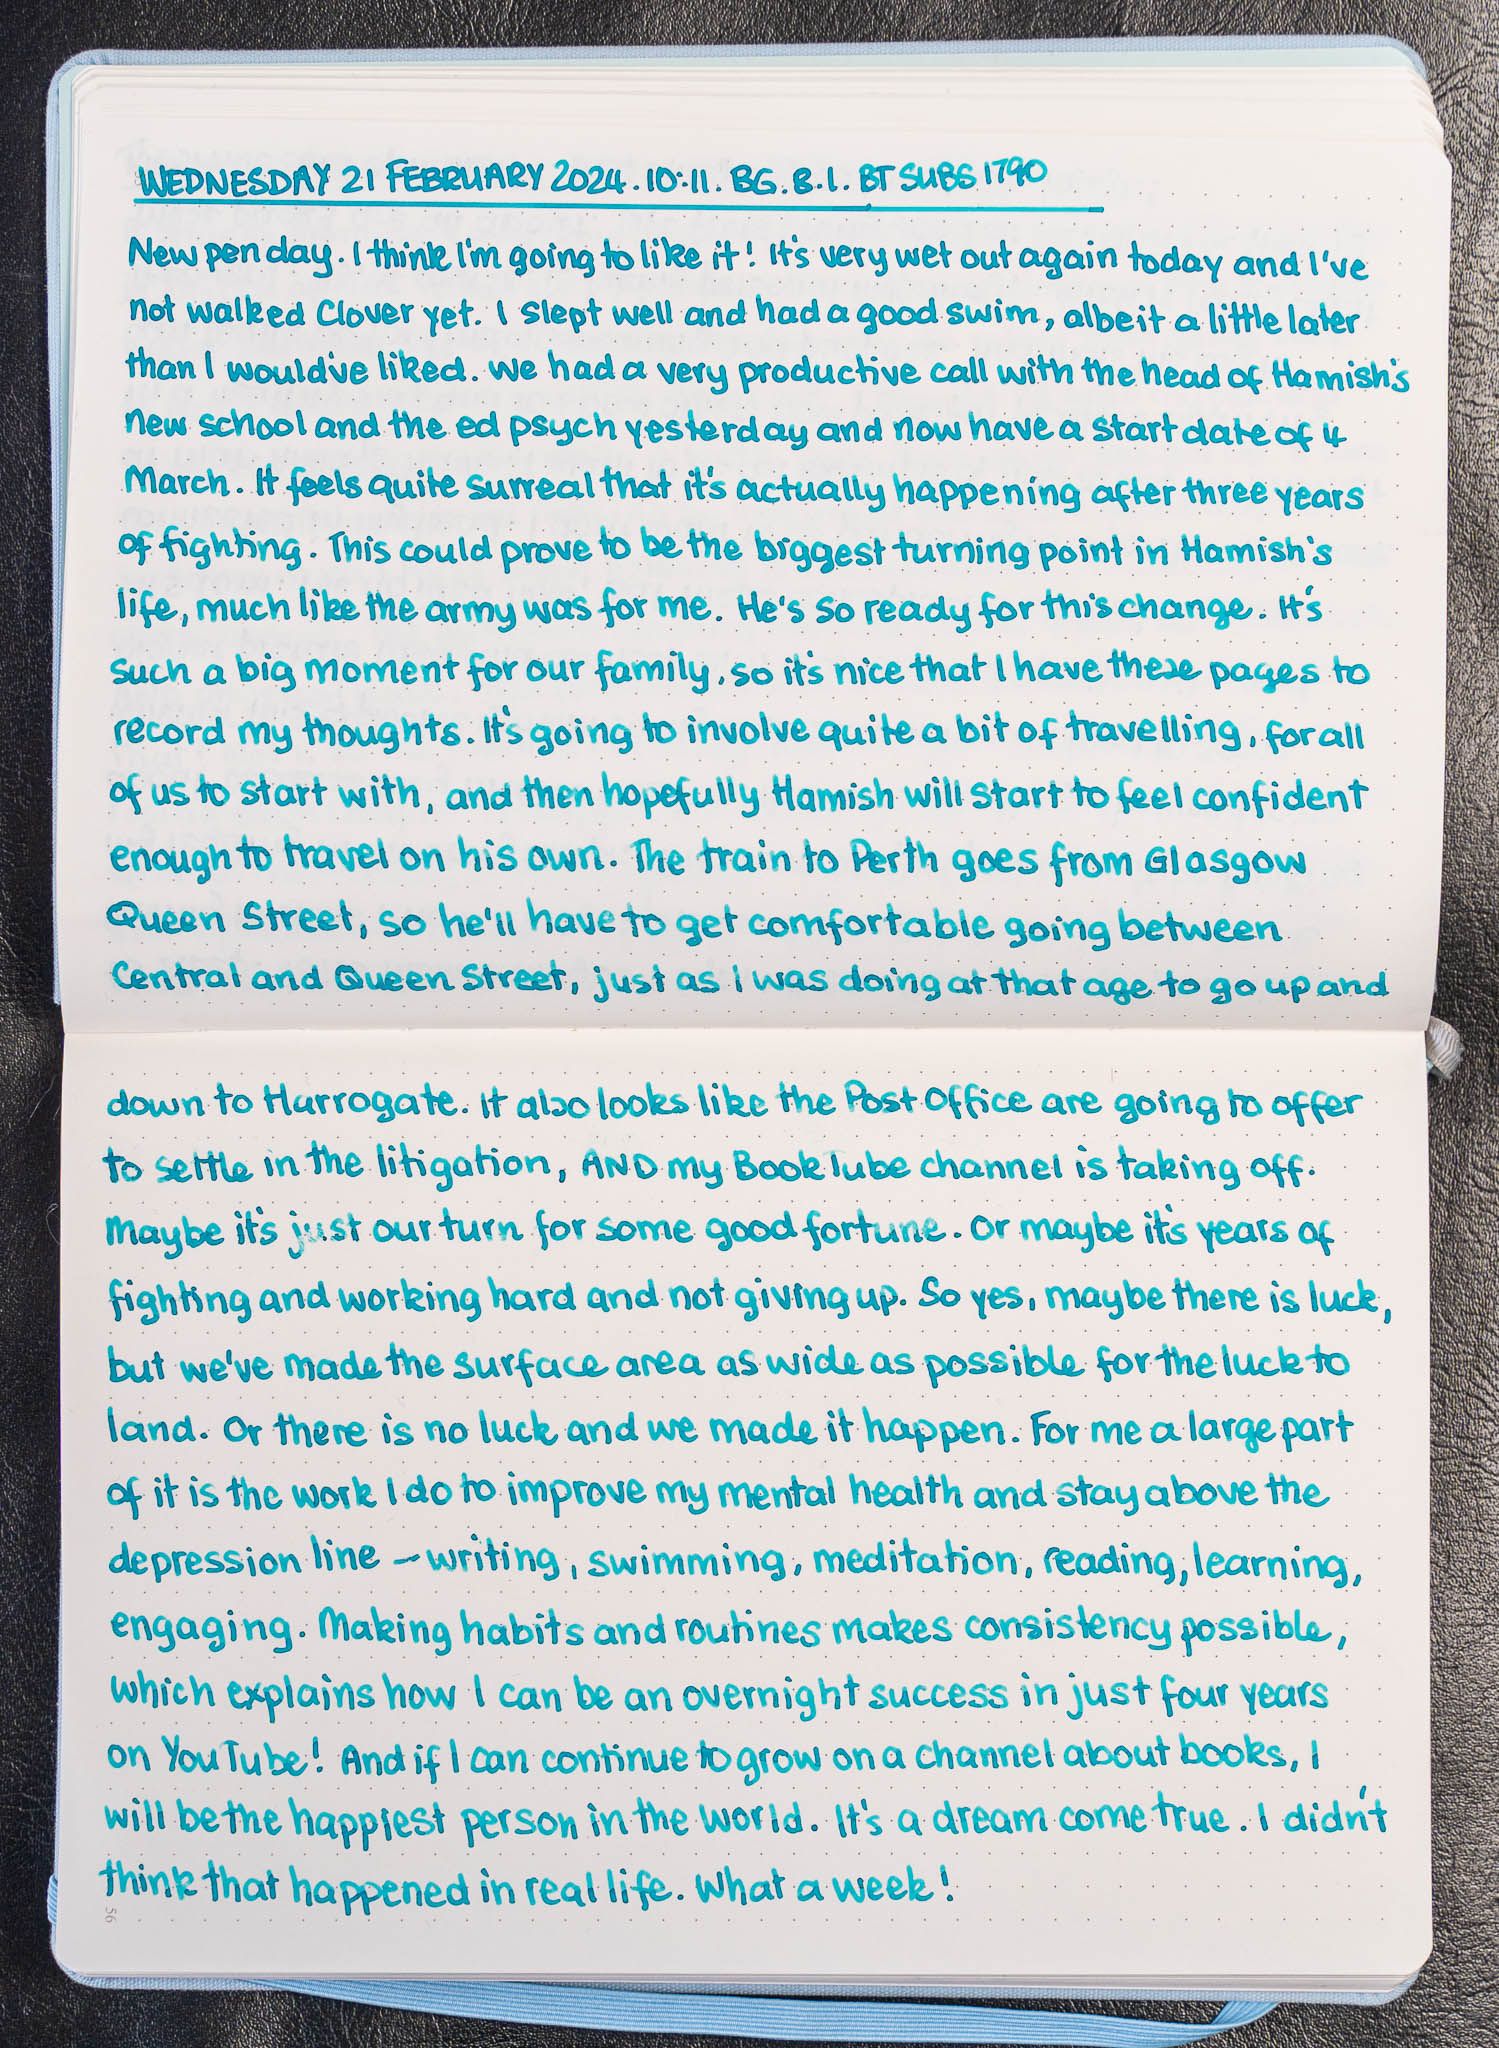 WEDNESDAY 21 FEBRUARY 2024. 10:11. BG. 8.1. BT SUBS 1790
New pen day. I think I'm going to like it! It's very wet out again today and I've
not walked Clover yet. I slept well and had a good swim, albeit a little later
than I would've liked. We had a very productive call with the head of Hamish's
new school and the ed psych yesterday and now have a start date of 4
March. It feels quite surreal that it's actually happening after three years
of fighting. This could prove to be the biggest turning point in Hamish's
life, much like the army was for me. He's so ready for this change. It's
such a big moment for our family, so it's nice that I have these pages to
record my thoughts. It's going to involve quite a bit of travelling, for all
of us to start with, and then hopefully Hamish will start to feel confident
enough to travel on his own. The train to Perth goes from Glasgow
Queen Street, so he'll have to get comfortable going between
Central and Queen Street, just as I was doing at that age to go up and
down to Harrogate. It also looks like the Post Office are going to offer
to settle in the litigation, AND my BookTube channel is taking off.
Maybe it's just our turn for some good fortune. Or maybe it's years of
fighting and working hard and not giving up. So yes, maybe there is luck,
but we've made the surface area as wide as possible for the luck to
land. Or there is no luck and we made it happen. For me a large part
of it is the work I do to improve my mental health and stay above the
depression line – writing, swimming, meditation, reading, learning,
engaging. Making habits and routines makes consistency possible,
which explains how I can be an overnight success in just four years
on YouTube! And if I can continue to grow on a channel about books, I
will be the happiest person in the world. It's a dream come true. I didn't
think that happened in real life. What a week!
56